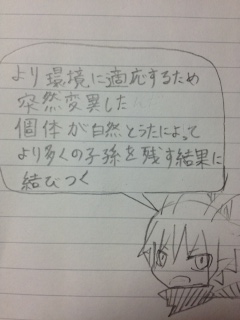 より環境に適応するため
突然変異した
個体が自然とうたによって
より多くの子孫を残す結果に
結びつく